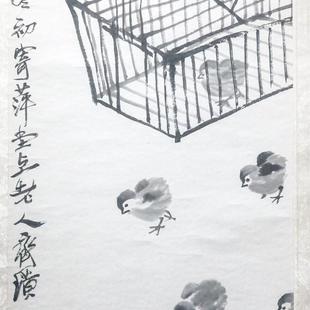 初寄萍堂上老人齊璜